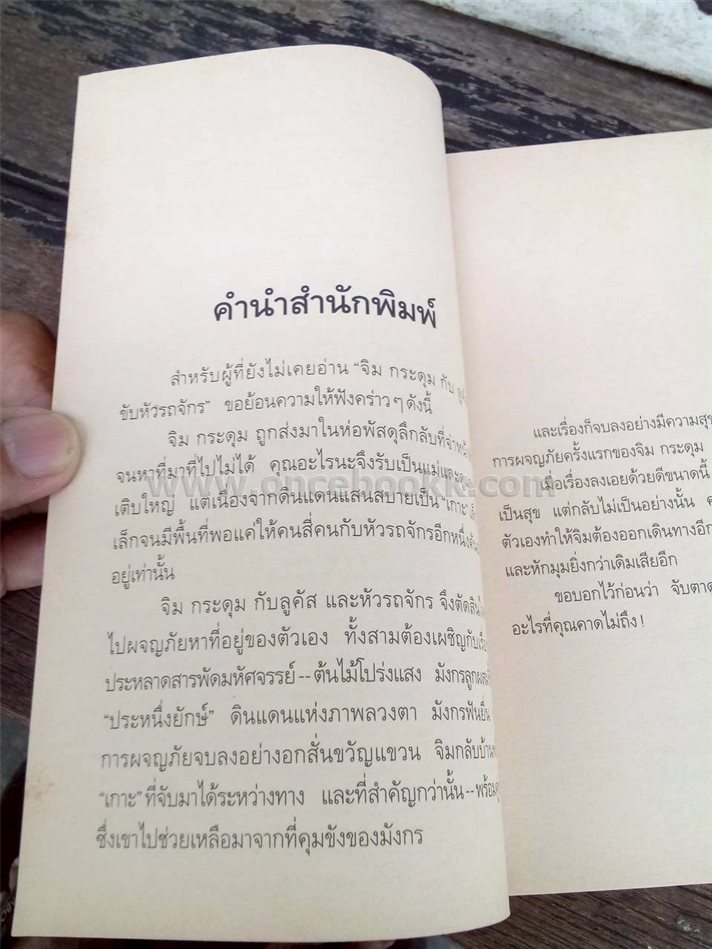 คำนำสำนักพิมพ์
สำหรับผู้ที่ยังไม่เคยอ่าน "จิม กระดุม กับ
ขับหัวรถจักร" ขอย้อนความให้ฟังคร่าวๆ ดังนี้
จิม กระดุม ถูกส่งมาในห่อพัสดุลึกลับที่จ่าหน้า
จนหาที่มาที่ไปไม่ได้ คุณอะไรนะจึงรับเป็นแม่และ
เติบใหญ่ แต่เนื่องจากดินแดนแสนสบายเป็น "เกาะ"
เล็กจนมีพื้นที่พอแค่ให้คนสี่คนกับหัวรถจักรอีกหนึ่ง
อยู่เท่านั้น
จิม กระดุม กับลูคัส และหัวรถจักร จึงตัดสิน
ไปผจญภัยหาที่อยู่ของตัวเอง ทั้งสามต้องเผชิญกับ
ประหลาดสารพัดมหัศจรรย์--ต้นไม้โปร่งแสง มังกร
"ประหนึ่งยักษ์" ดินแดนแห่งภาพลวงตา มังกรฟันยื่น
การผจญภัยจบลงอย่างอกสั่นขวัญแขวน จิมกลับบ้าน
"เกาะ" ที่จับมาได้ระหว่างทาง และที่สำคัญกว่านั้น--พร้อม
ซึ่งเขาไปช่วยเหลือมาจากที่คุมขังของมังกร
และเรื่องก็จบลงอย่างมีความสุข
การผจญภัยครั้งแรกของจิม กระดุม
เมื่อเรื่องลงเอยด้วยดีขนาดนี้
เป็นสุข แต่กลับไม่เป็นอย่างนั้น
ตัวเองทำให้จิมต้องออกเดินทางอีก
และหักมุมยิ่งกว่าเดิมเสียอีก
ขอบอกไว้ก่อนว่า จับตาด
อะไรที่คุณคาดไม่ถึง!
www.oncebookk.com